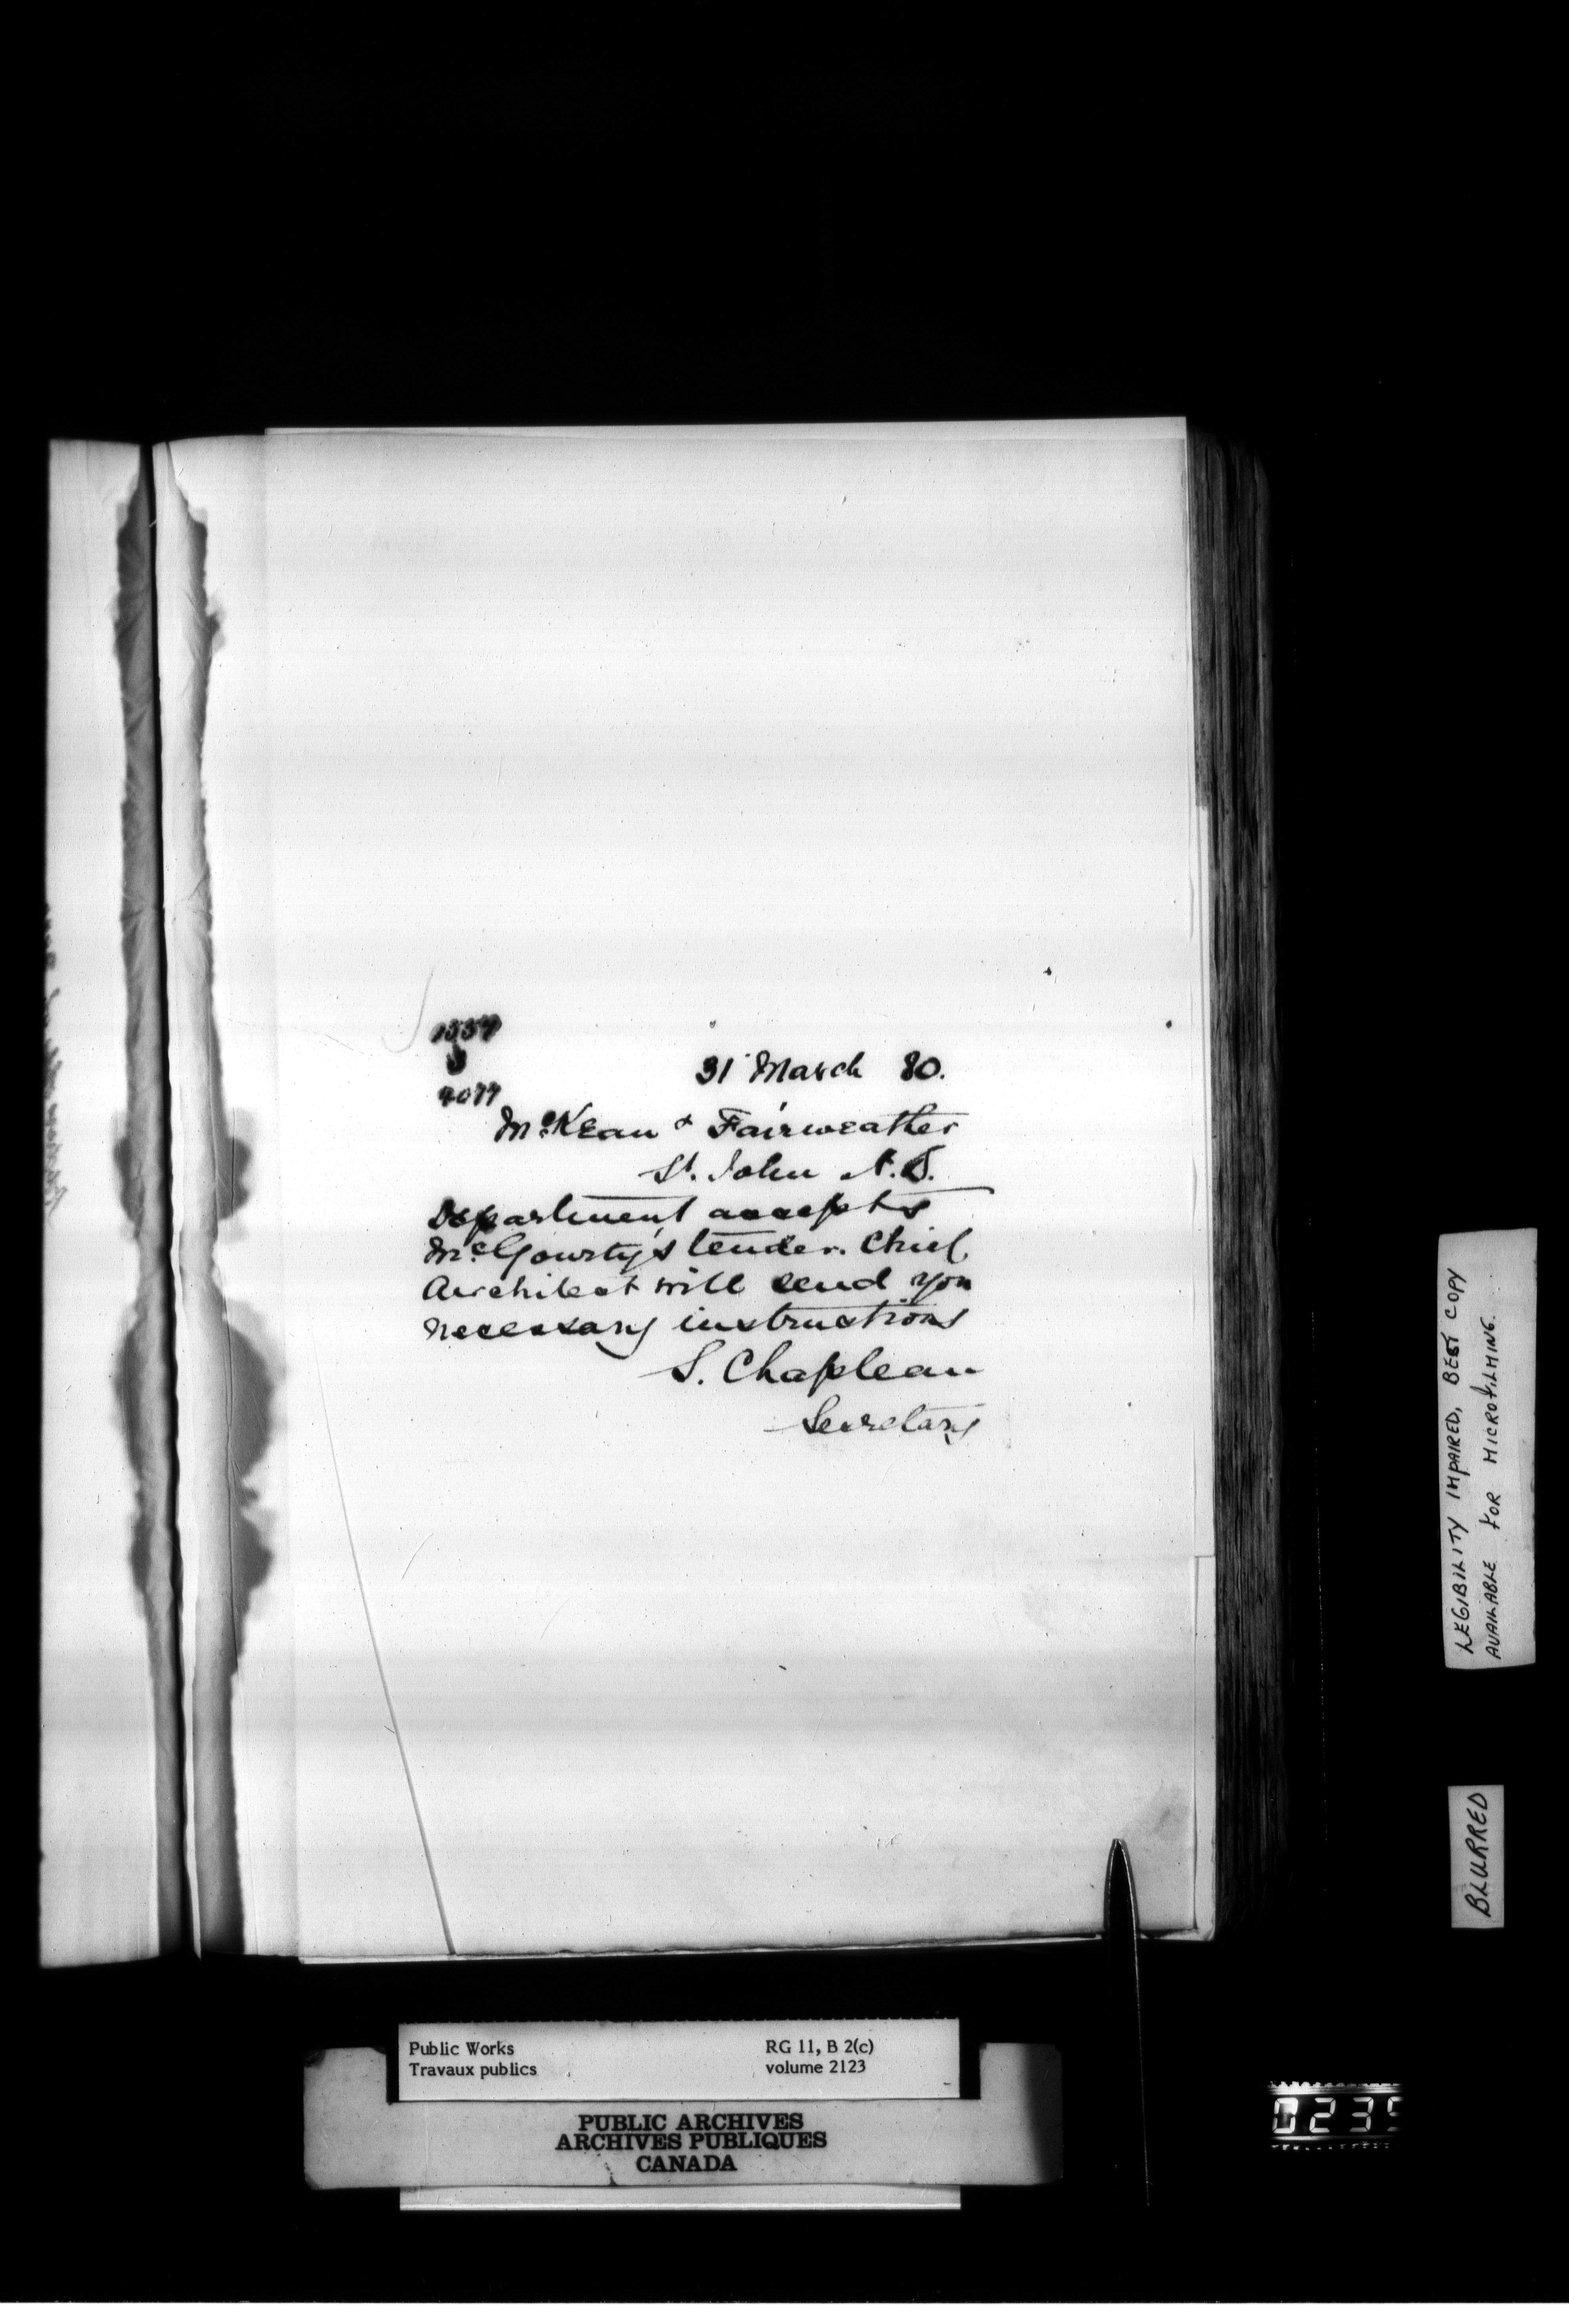 4077
31 March 80.
McKean & Fairweather
St. John
Department accepts
McGourty's tender. Chief
Architect will send you
necessary instructions
S. Chapleau
Secretary
LEGIBILITY IMPAIRED, BEST COPY
AVAILABLE FOR MICROFILMING.
BLURRED
Public Works RG 11, B 2(c)
Travaux publics volume 2123
PUBLIC ARCHIVES
ARCHIVES PUBLIQUES
CANADA
0235